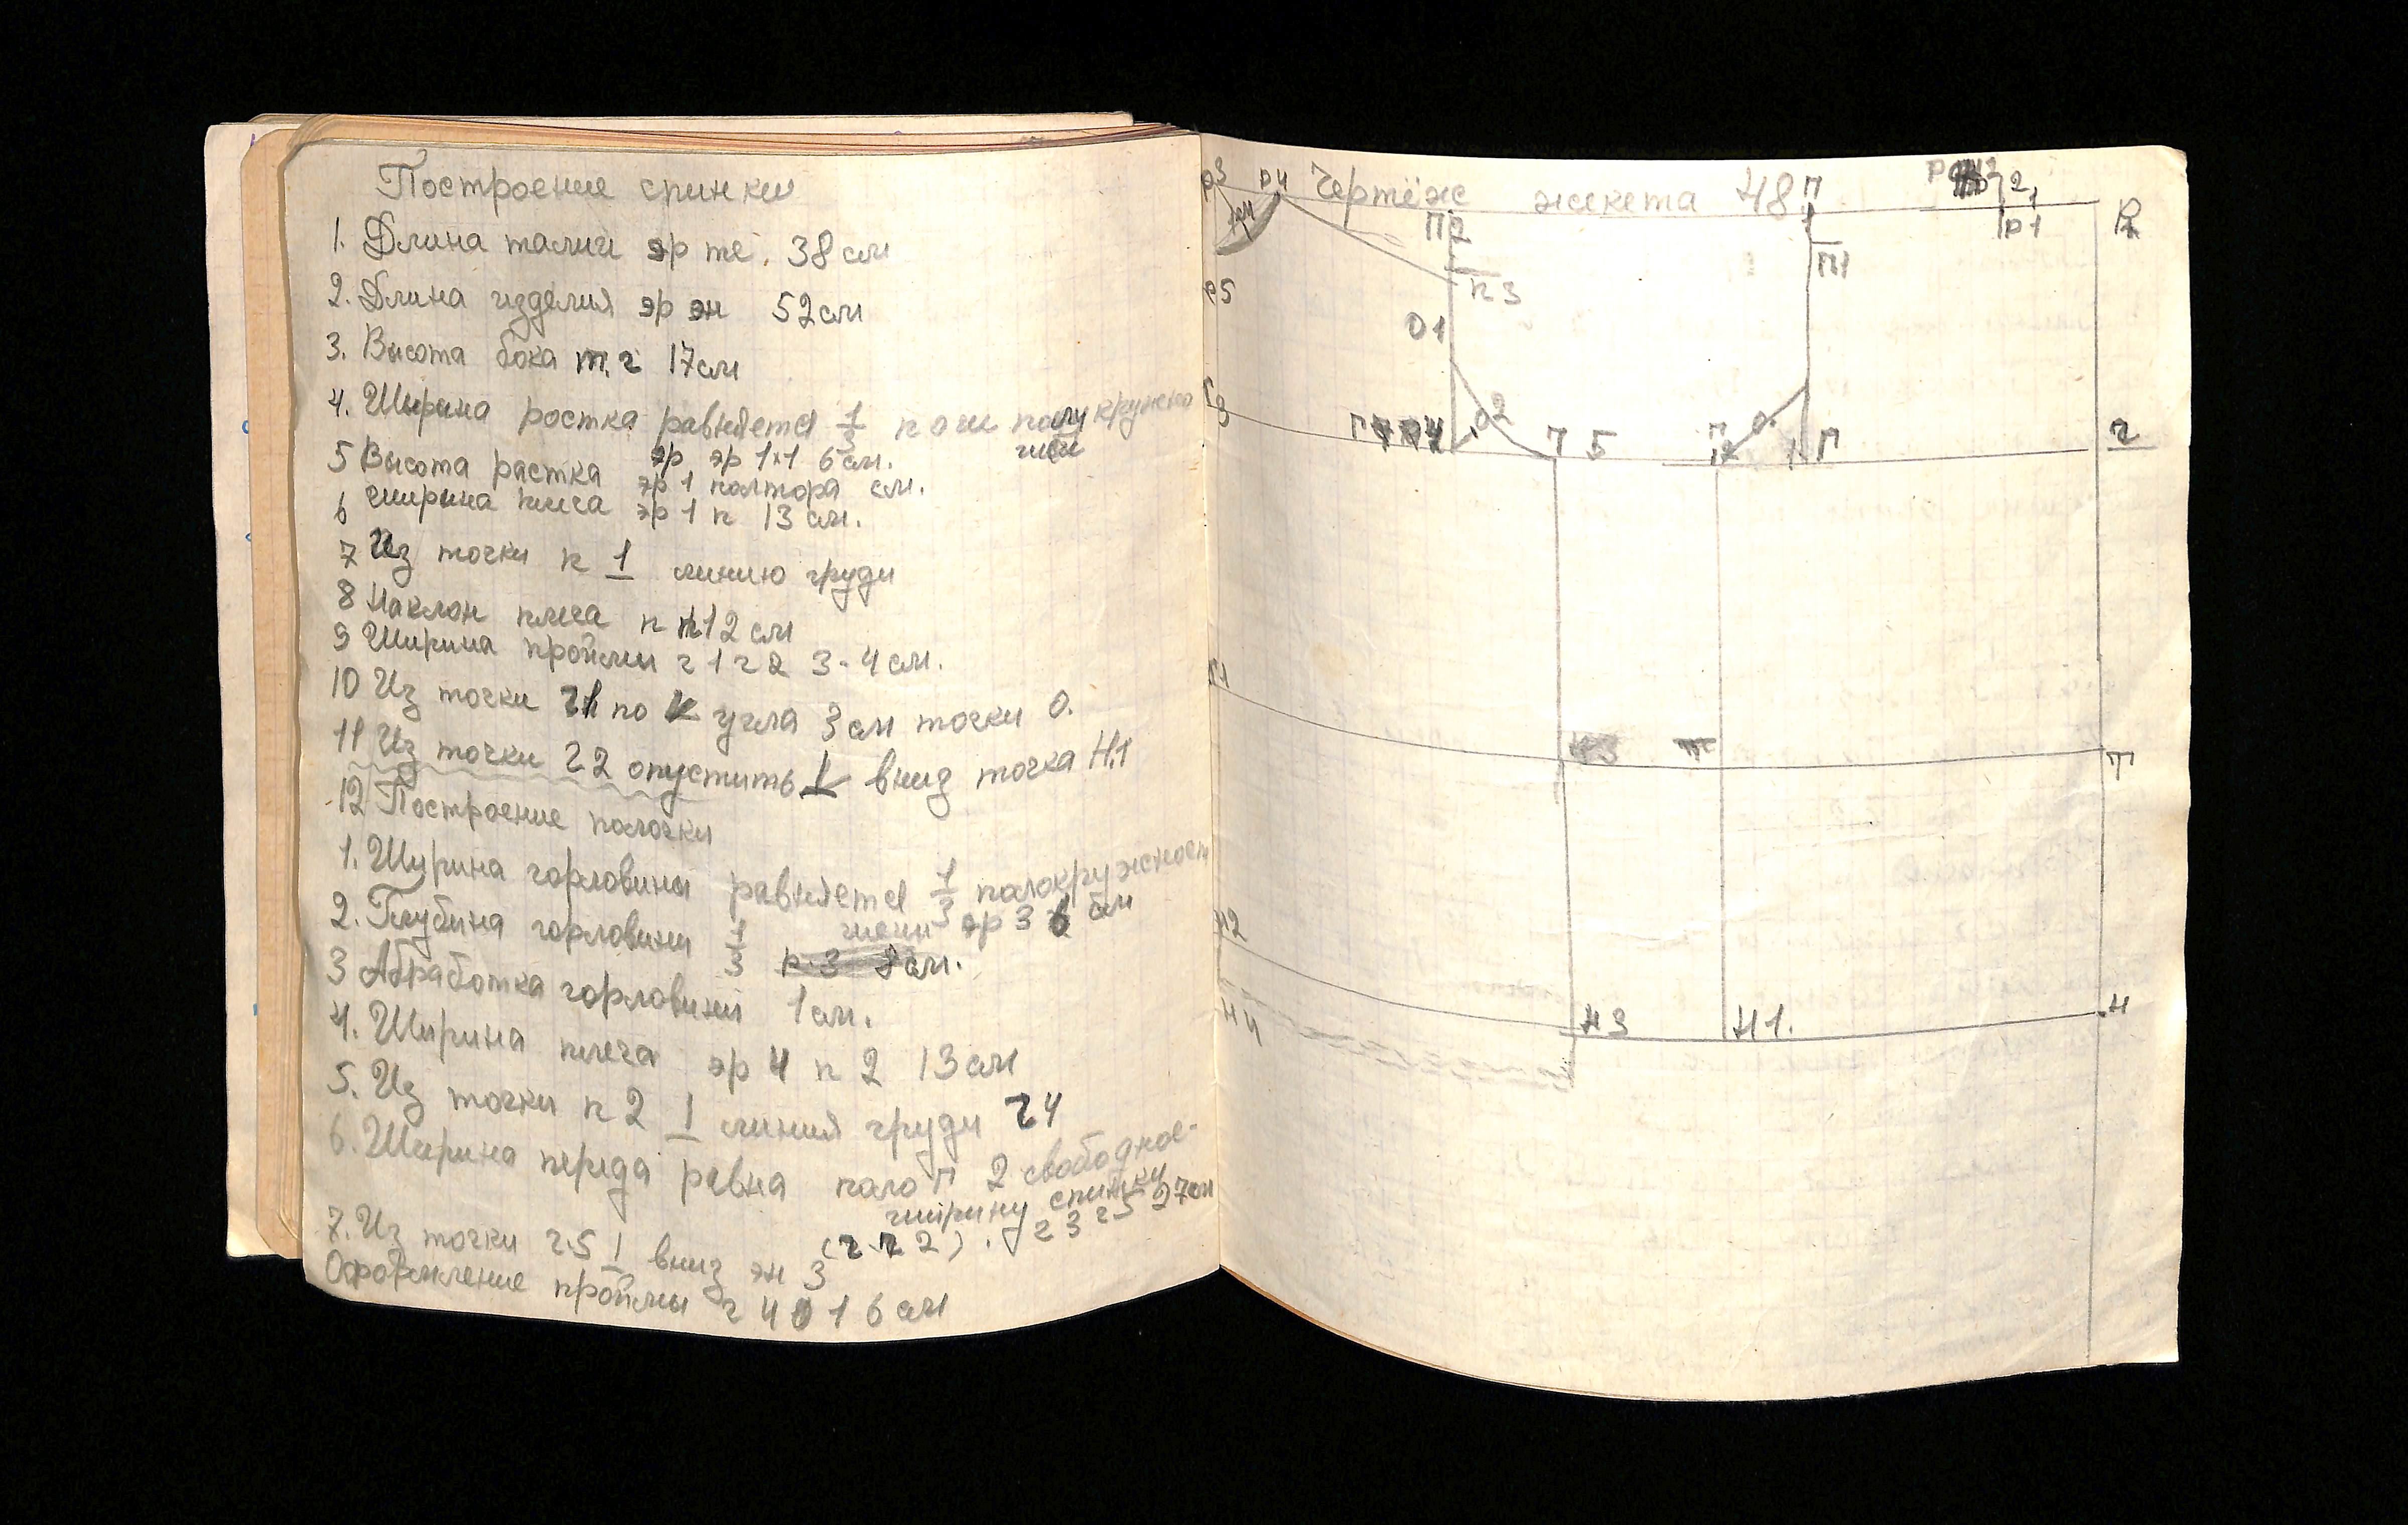 Построение спинки
1. Длина талии эр тé. 38 см
2. Длина изделия эр эн 52 см
3. Высота бока т.г 17 см
4. Ширина ростка равняется 1/3 полукружно
шеи
5 Высота растка эр эр 1+1 6 см.
эр 1 полтора см.
6 Ширина плеча эр 1 п 13 см.
7 Из точки п ⊥ линию груди
8 Наклон плеча п п1 2 см
9 Ширина проймы г 1 г 2 3-4 см.
10 Из точки г1 по угла 3 см точки О.
11 Из точки г2 опустить ⊥ вниз точка Н.1
12 Построение полочки
1. Ширина горловины равняется 1/3 полокружност
шеи эр 3 6 см
2. Глубина горловини 1/3 р.3 8 см.
3 Абработка горловини 1 см.
4. Ширина плеча эр 4 п 2 13 см
5. Из точки п 2 ⊥ линия груди г4
6. Ширина переда равна поло п 2 свободное-
ширину спинки
(г г 2). г 3 г5 27 см
7. Из точки г.5 ⊥ вниз эн 3
Оформление проймы г 4 О 1 6 см
Чертёж жекета 48
р3
р4
П2
п 3
П
П1
2
р1
р5
О1
О2
Г3
5
О
П
г
Н3
Т
Н2
Н4
Н3
Н1.
Н